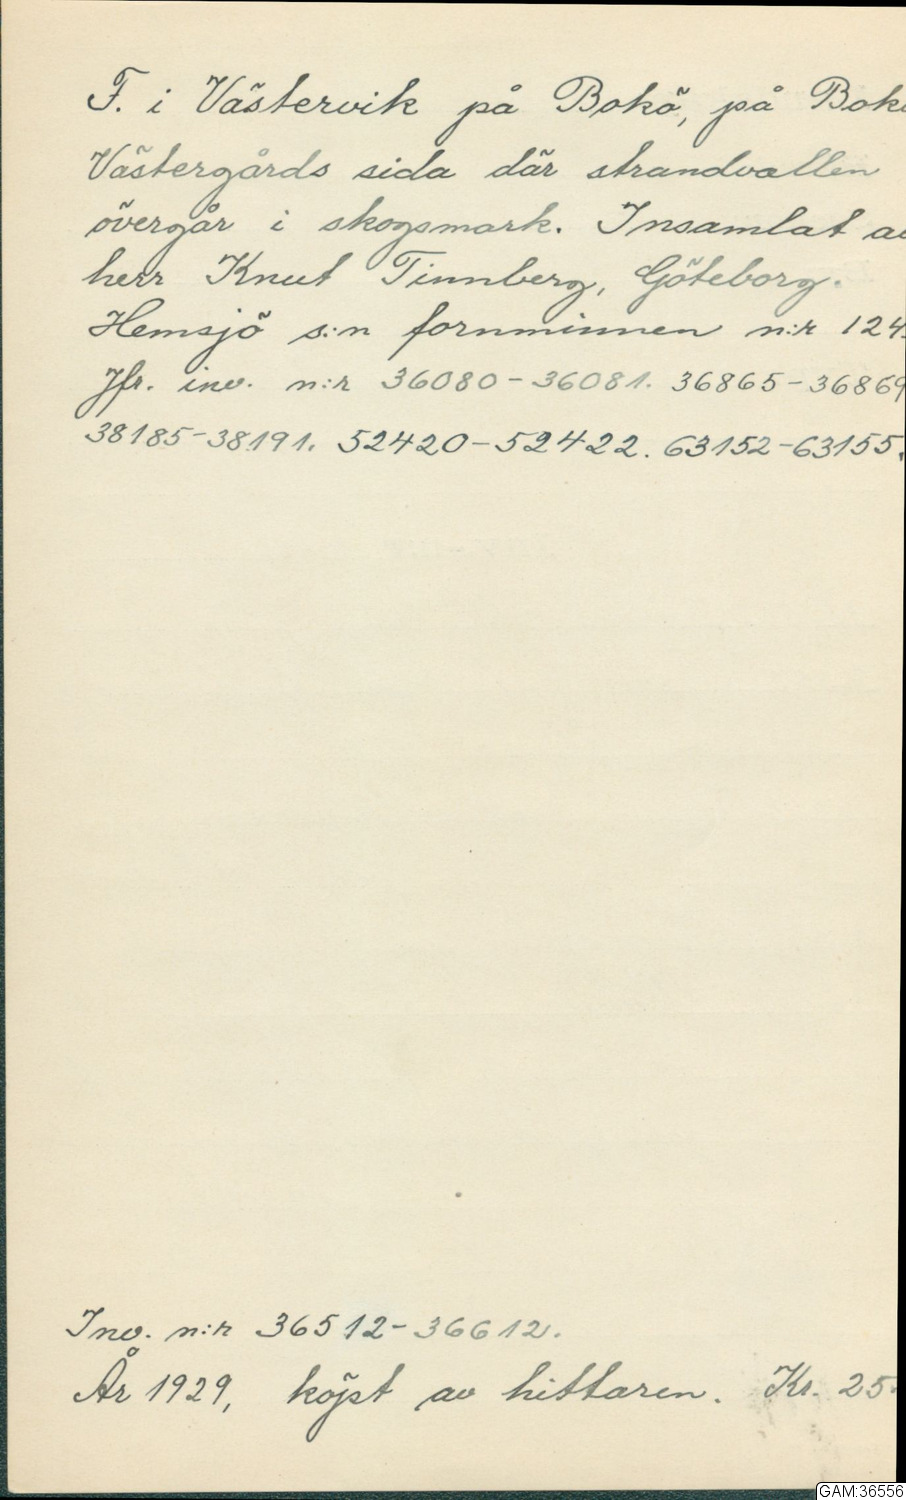 F. i Västervik på Bokö, på Bok
Västergårds sida där strandvallen
övergår i skogsmark. Insamlat a
herr Knut Tinnberg, Göteborg.
Hemsjö s:n fornminnen n:r 124.
Jfr. inv. n:r 36080-36081. 36865-36869
38185-38191. 52420-52422. 63152-63155.
Inv. n:r 36512-36612.
År 1929, köpt av hittaren. Kr. 25
GAM:36556